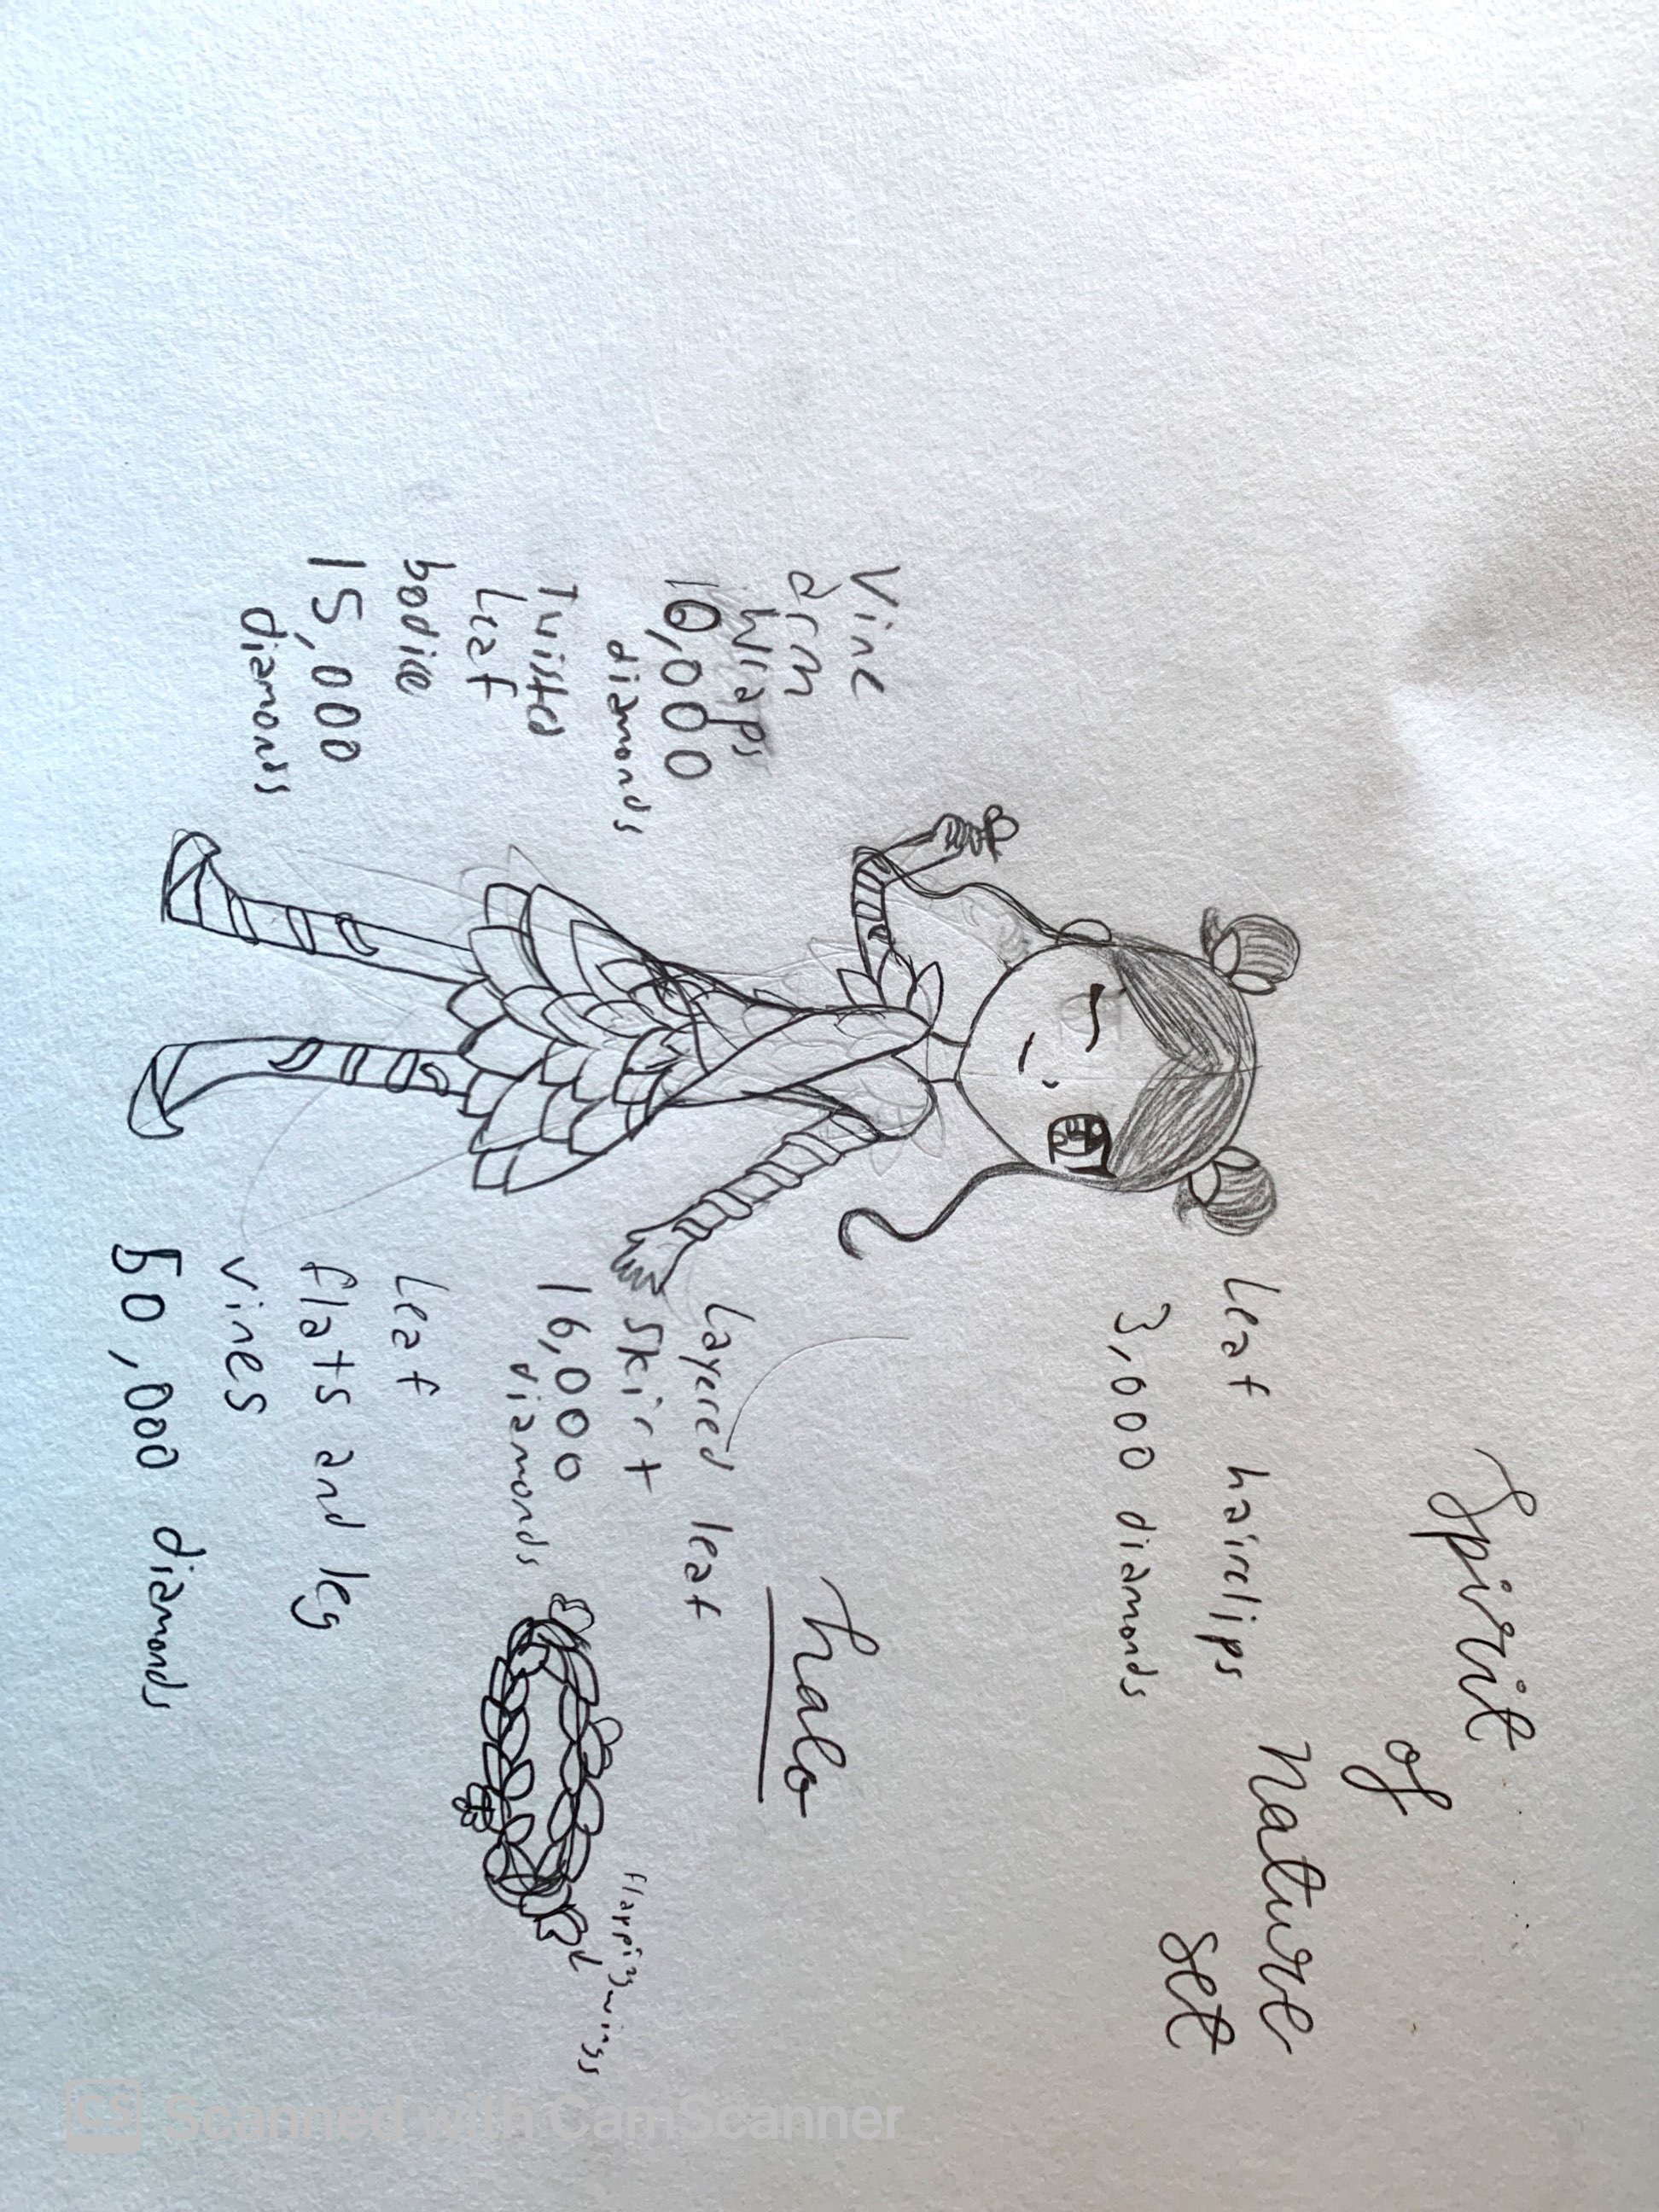 Spirit
of
Nature
set
Leaf hairclips
3,000 diamonds
Vine
arm
wraps
10,000
diamonds
Twisted
Leaf
bodice
15,000
diamonds
halo
Layered leaf
skirt
16,000
diamonds
flapping wings
Leaf
flats and leg
vines
50,000 diamonds
CS Scanned with CamScanner